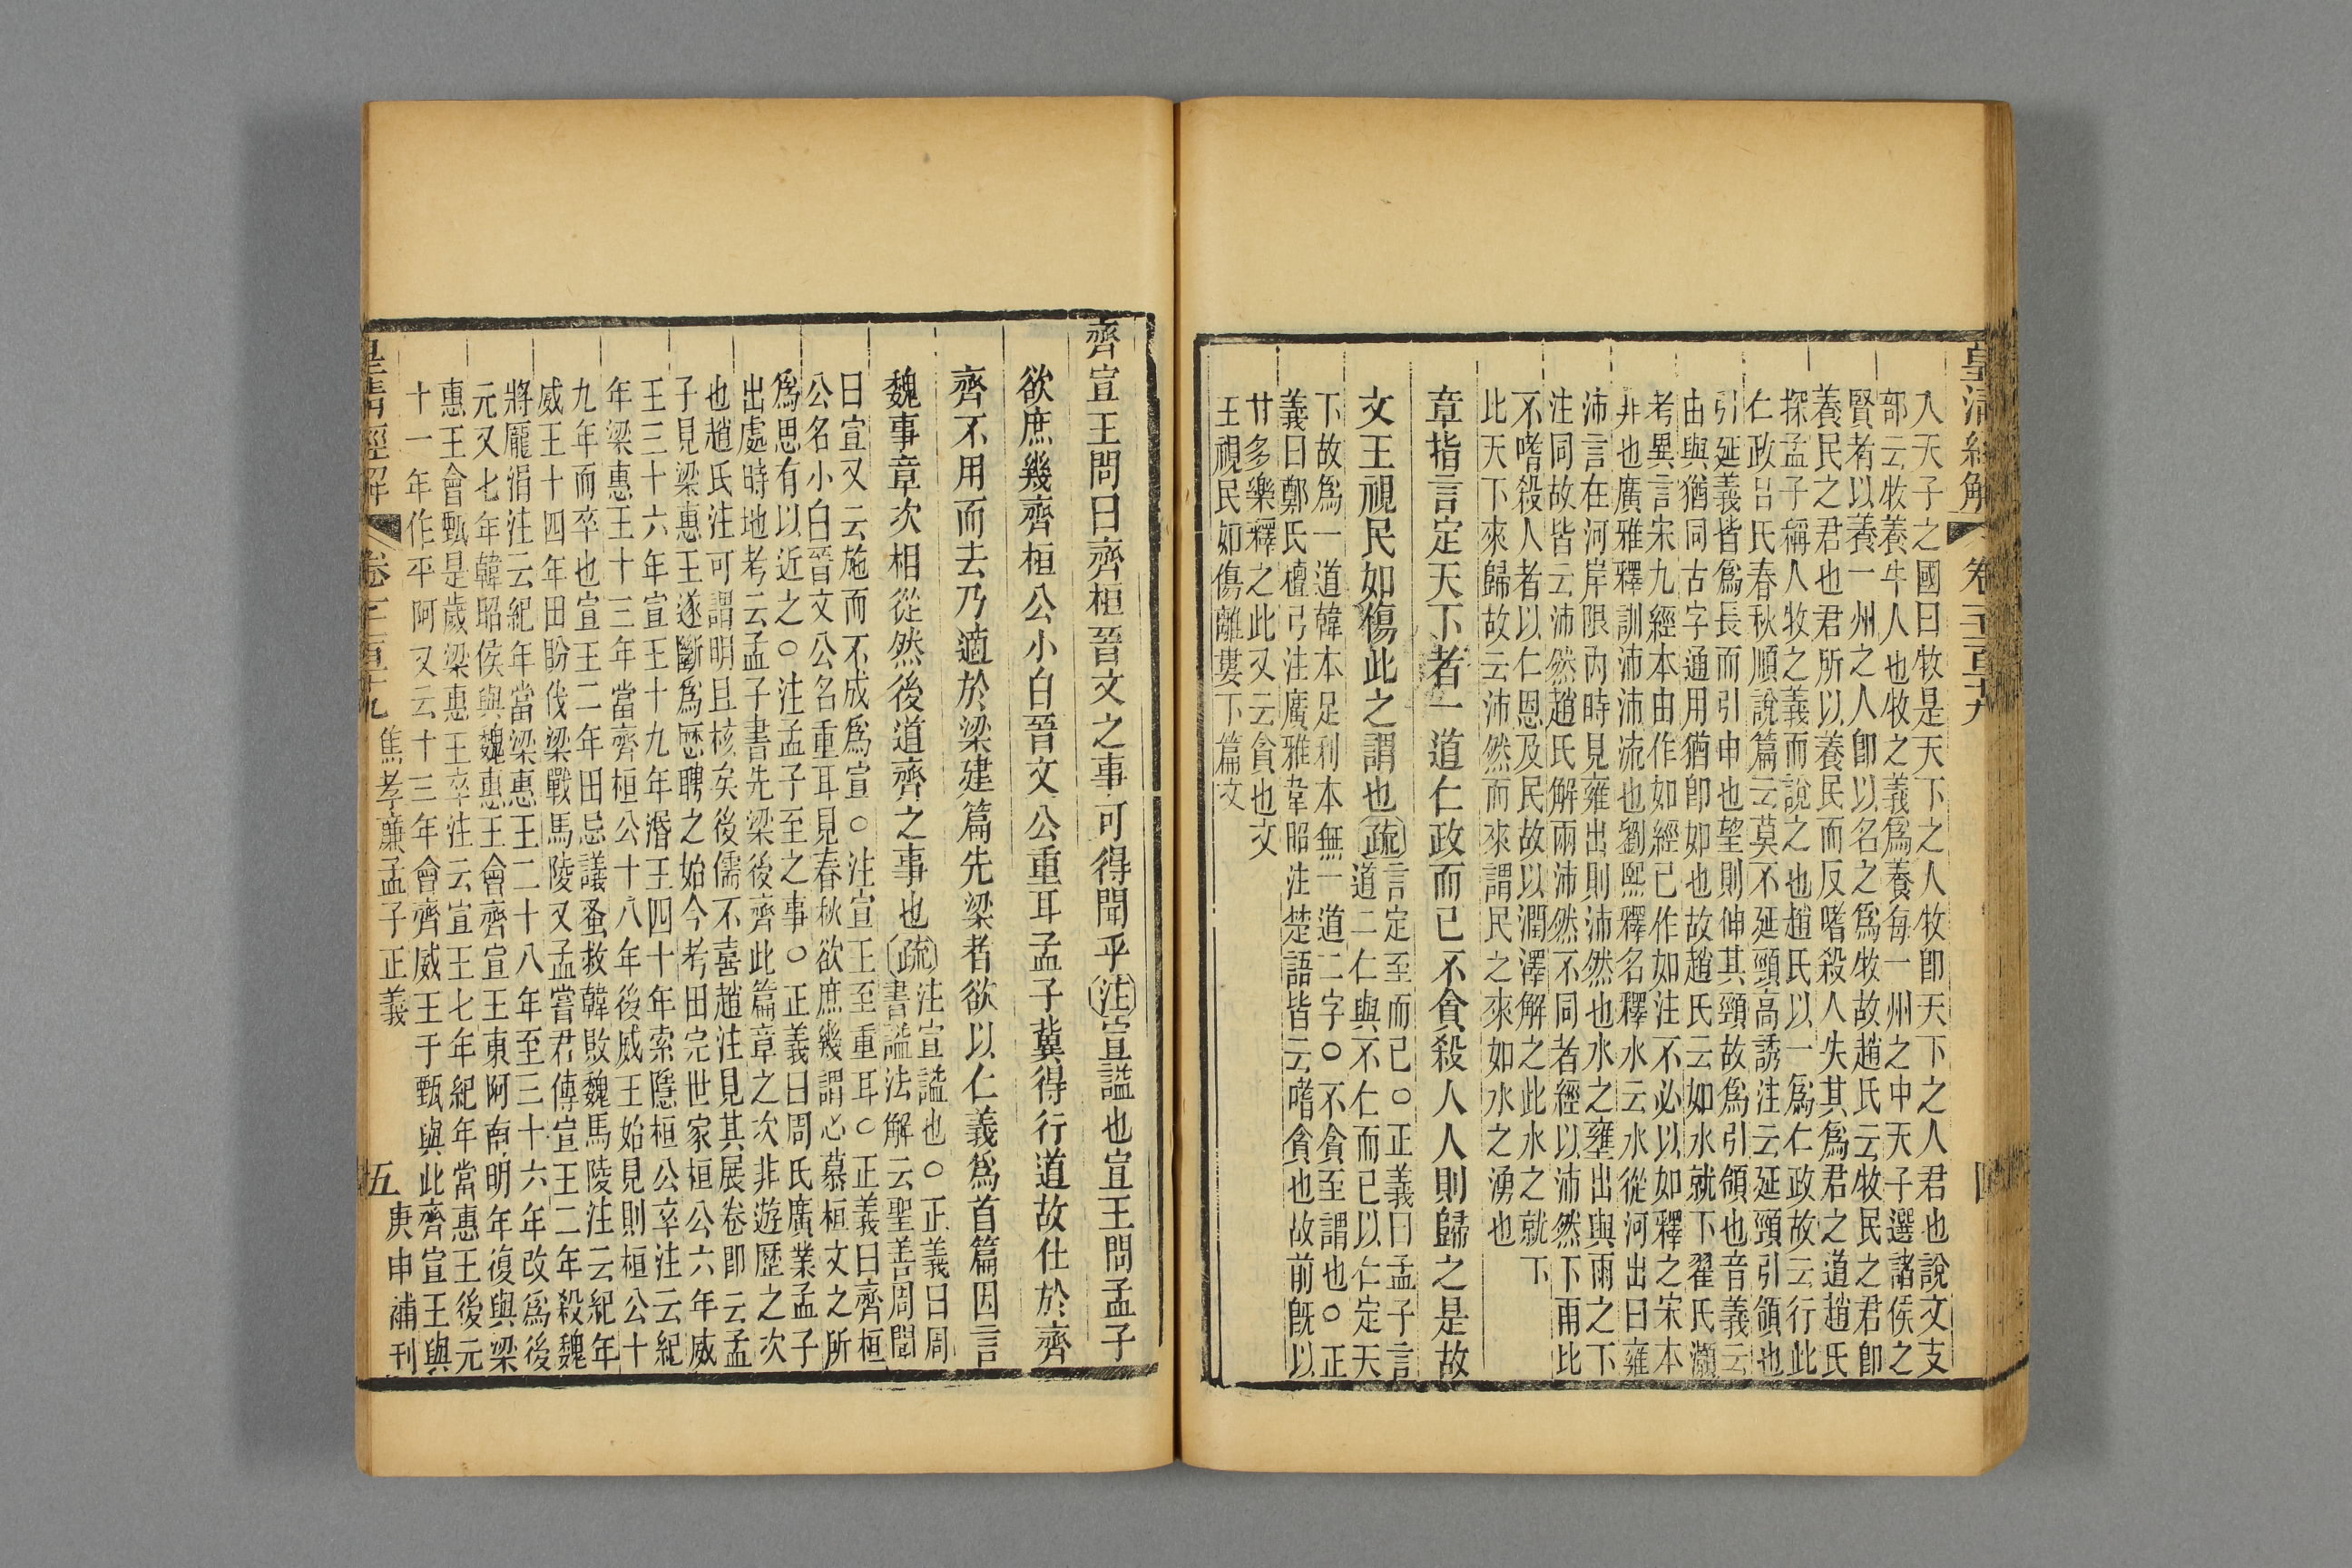 皇清經解 卷一千一百一十九 四
人天子之國曰牧是天下之人牧卽天下之人君也說文支
部云牧養牛人也牧之義爲養每一州之中天子選諸侯之
賢者以養一州之人卽以名之爲牧故趙氏云牧民之君卽
養民之君也君所以養民而反嗜殺人失其爲君之道趙氏
探孟子稱人牧之義而說之也趙氏以一爲仁政故云行此
仁政呂氏春秋順說篇云莫不延頸高誘注云延頸引領也
引延義皆爲長而引申也望則伸其頸故爲引領也音義云
由與猶同古字通用猶卽如也故趙氏云如水就下翟氏灝
考異言宋九經本由作如經已作如注不必以如釋之宋本
非也廣雅釋訓沛沛流也劉熙釋名釋水云水從河出曰雍
沛言在河岸限內時見雍出則沛然也水之壅出與雨之下
注同故皆云沛然趙氏解雨沛然不同者經以沛然下雨比
不嗜殺人者以仁恩及民故以潤澤解之此水之就下
此天下來歸故云沛然而來謂民之來如水之湧也
章指言定天下者一道仁政而已不貪殺人人則歸之是故
文王視民如傷此之謂也疏言定至而已○正義曰孟子言
道二仁與不仁而已以仁定天
下故爲一道韓本足利本無一道二字○不貪至謂也○正
義曰鄭氏檀弓注廣雅韋昭注楚語皆云嗜貪也故前旣以
甘多樂釋之此又云貪也文
王視民如傷離婁下篇文
齊宣王問曰齊桓晉文之事可得聞乎注宣謚也宣王問孟子
欲庶幾齊桓公小白晉文公重耳孟子冀得行道故仕於齊
齊不用而去乃適於梁建篇先梁者欲以仁義爲首篇因言
魏事章次相從然後道齊之事也疏注宣謚也○正義曰周
書謚法解云聖善周聞
曰宣又云施而不成爲宣○注宣王至重耳○正義曰齊桓
公名小白晉文公名重耳見春秋欲庶幾謂心慕桓文之所
爲思有以近之○注孟子至之事○正義曰周氏廣業孟子
出處時地考云孟子書先梁後齊此篇章之次非遊歷之次
也趙氏注可謂明且核矣後儒不喜趙注見其展卷卽云孟
子見梁惠王遂斷爲歷聘之始今考田完世家桓公六年威
王三十六年宣王十九年湣王四十年索隱桓公卒注云紀
年梁惠王十三年當齊桓公十八年後威王始見則桓公十
九年而卒也宣王二年田忌議蚤救韓敗魏馬陵注云紀年
威王十四年田盼伐梁戰馬陵又孟嘗君傳宣王二年殺魏
將龐涓注云紀年當梁惠王二十八年至三十六年改爲後
元又七年韓昭侯與魏惠王會齊宣王東阿南明年復與梁
惠王會甄是歲梁惠王卒注云宣王七年紀年當惠王後元
十一年作平阿又云十三年會齊威王于甄與此齊宣王與
皇清經解 卷一千一百一十九 焦孝廉孟子正義 五 庚申補刊